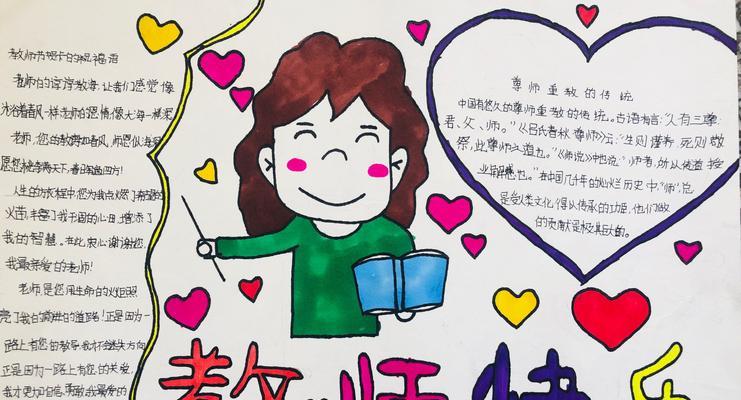 教师节贺卡的祝福语
老师的谆谆教诲,让我们感觉像
沐浴着春风一样老师的恩情像大海一样深
老师,您的教诲如春风,师恩似海深
人生的旅程中,您为我点燃了希望的
我的智慧。在此衷心谢谢您,
我最亲爱的老师!
老师,是您用生命的火炬照
亮了我的前进的道路!正是因为一
路上有您的教导,我才不会迷失方向
正是因为一路上有您的关爱,
我才更加自信
尊师重教的传统
中国有悠久的尊师重教的传统。古语有言:“人有三尊:
君、父、师。”《吕氏春秋·尊师》云:“生则谨养,死则敬
祭,此尊师之道也。”《师说》中也说:“师者,所以传道授
业解惑也。”在中国几千年的灿烂历史中,“师”,总
是受人类文化得以传承的功臣,他们做
的贡献是极其巨大的。
教师快乐